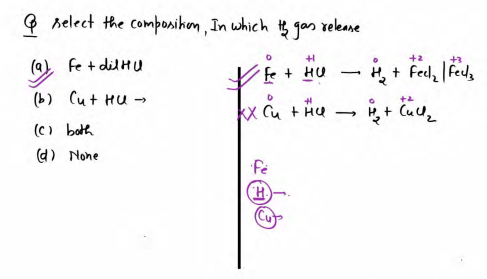 Q select the composition, In which H2 gas release
(a) Fe + dil HCl
(b) Cu + HCl →
(c) both
(d) None
0 +1 0 +2 +3
Fe + HCl → H2 + FeCl2 | FeCl3
0 +1 0 +2
XX Cu + HCl → H2 + CuCl2
Fe
H →
Cu →